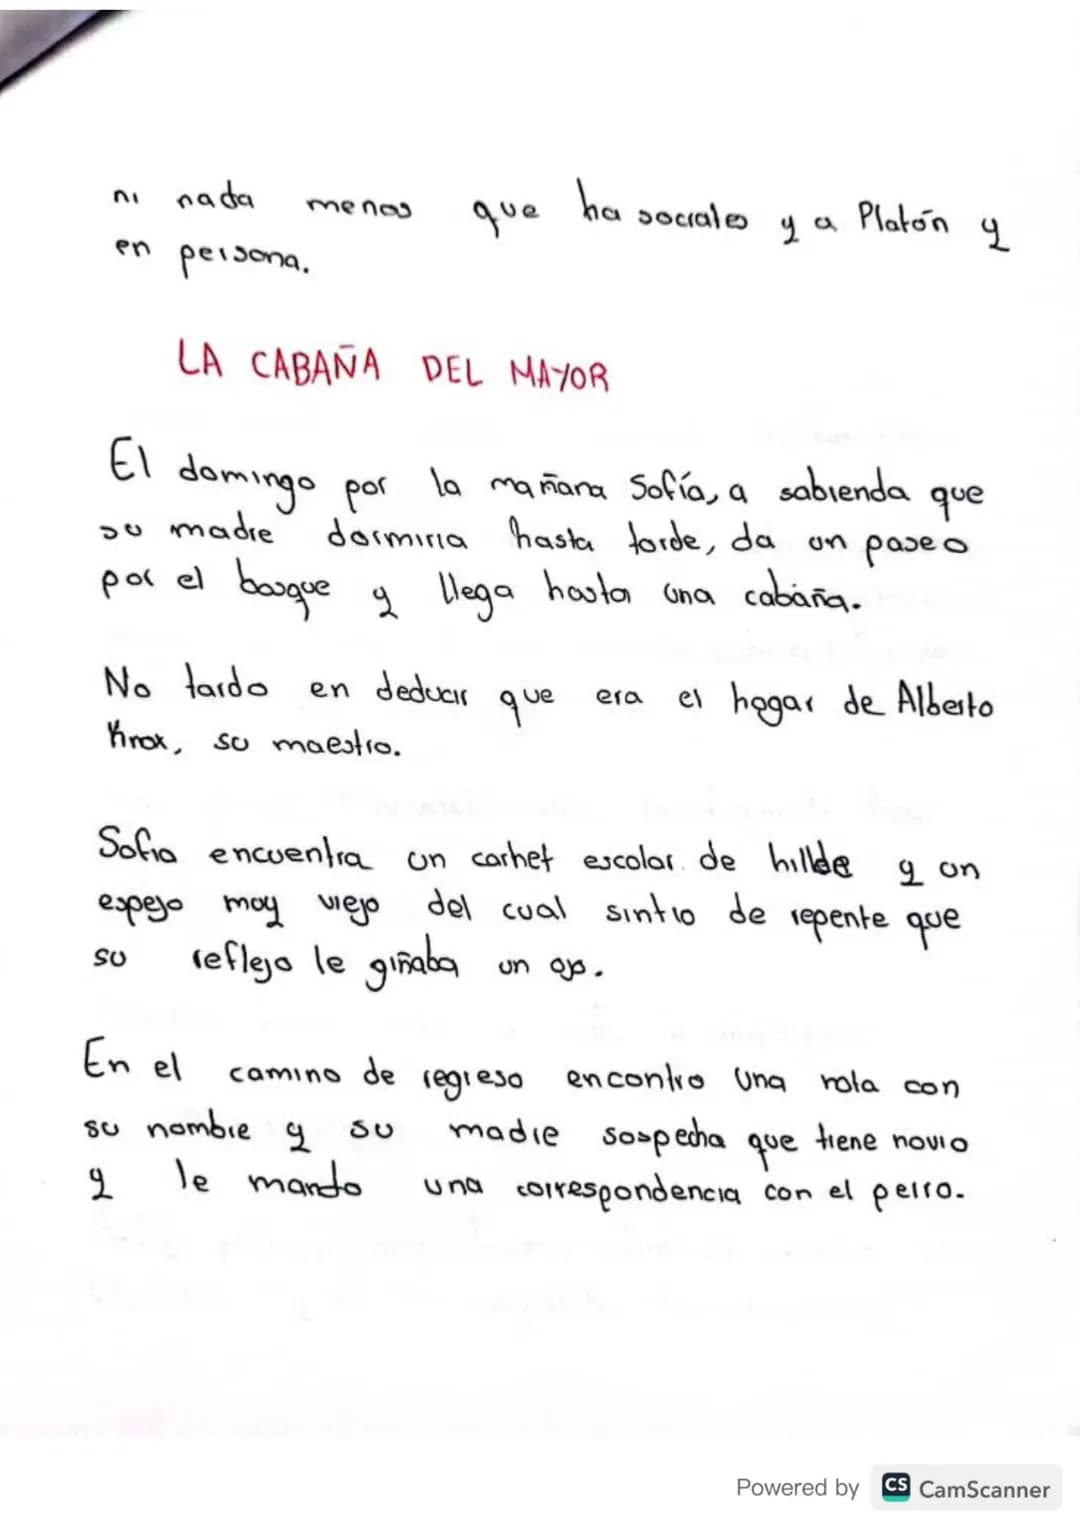 ni nada menos que ha socrates y a Platón y
en persona.
LA CABAÑA DEL MAYOR
El domingo por la mañana Sofía, a sabienda que
su madre dormiria hasta tarde, da un paseo
por el bosque y llega hasta una cabaña.
No tardo en deducir que era el hogar de Alberto
Knox, su maestro.
Sofia encuentra un carnet escolar de hillde y un
espejo muy viejo del cual sintio de repente que
su reflejo le giñaba un ojo.
En el camino de regreso encontro una nota con
su nombre y su madre sospecha que tiene novio
y le mando una correspondencia con el perro.
Powered by CS CamScanner